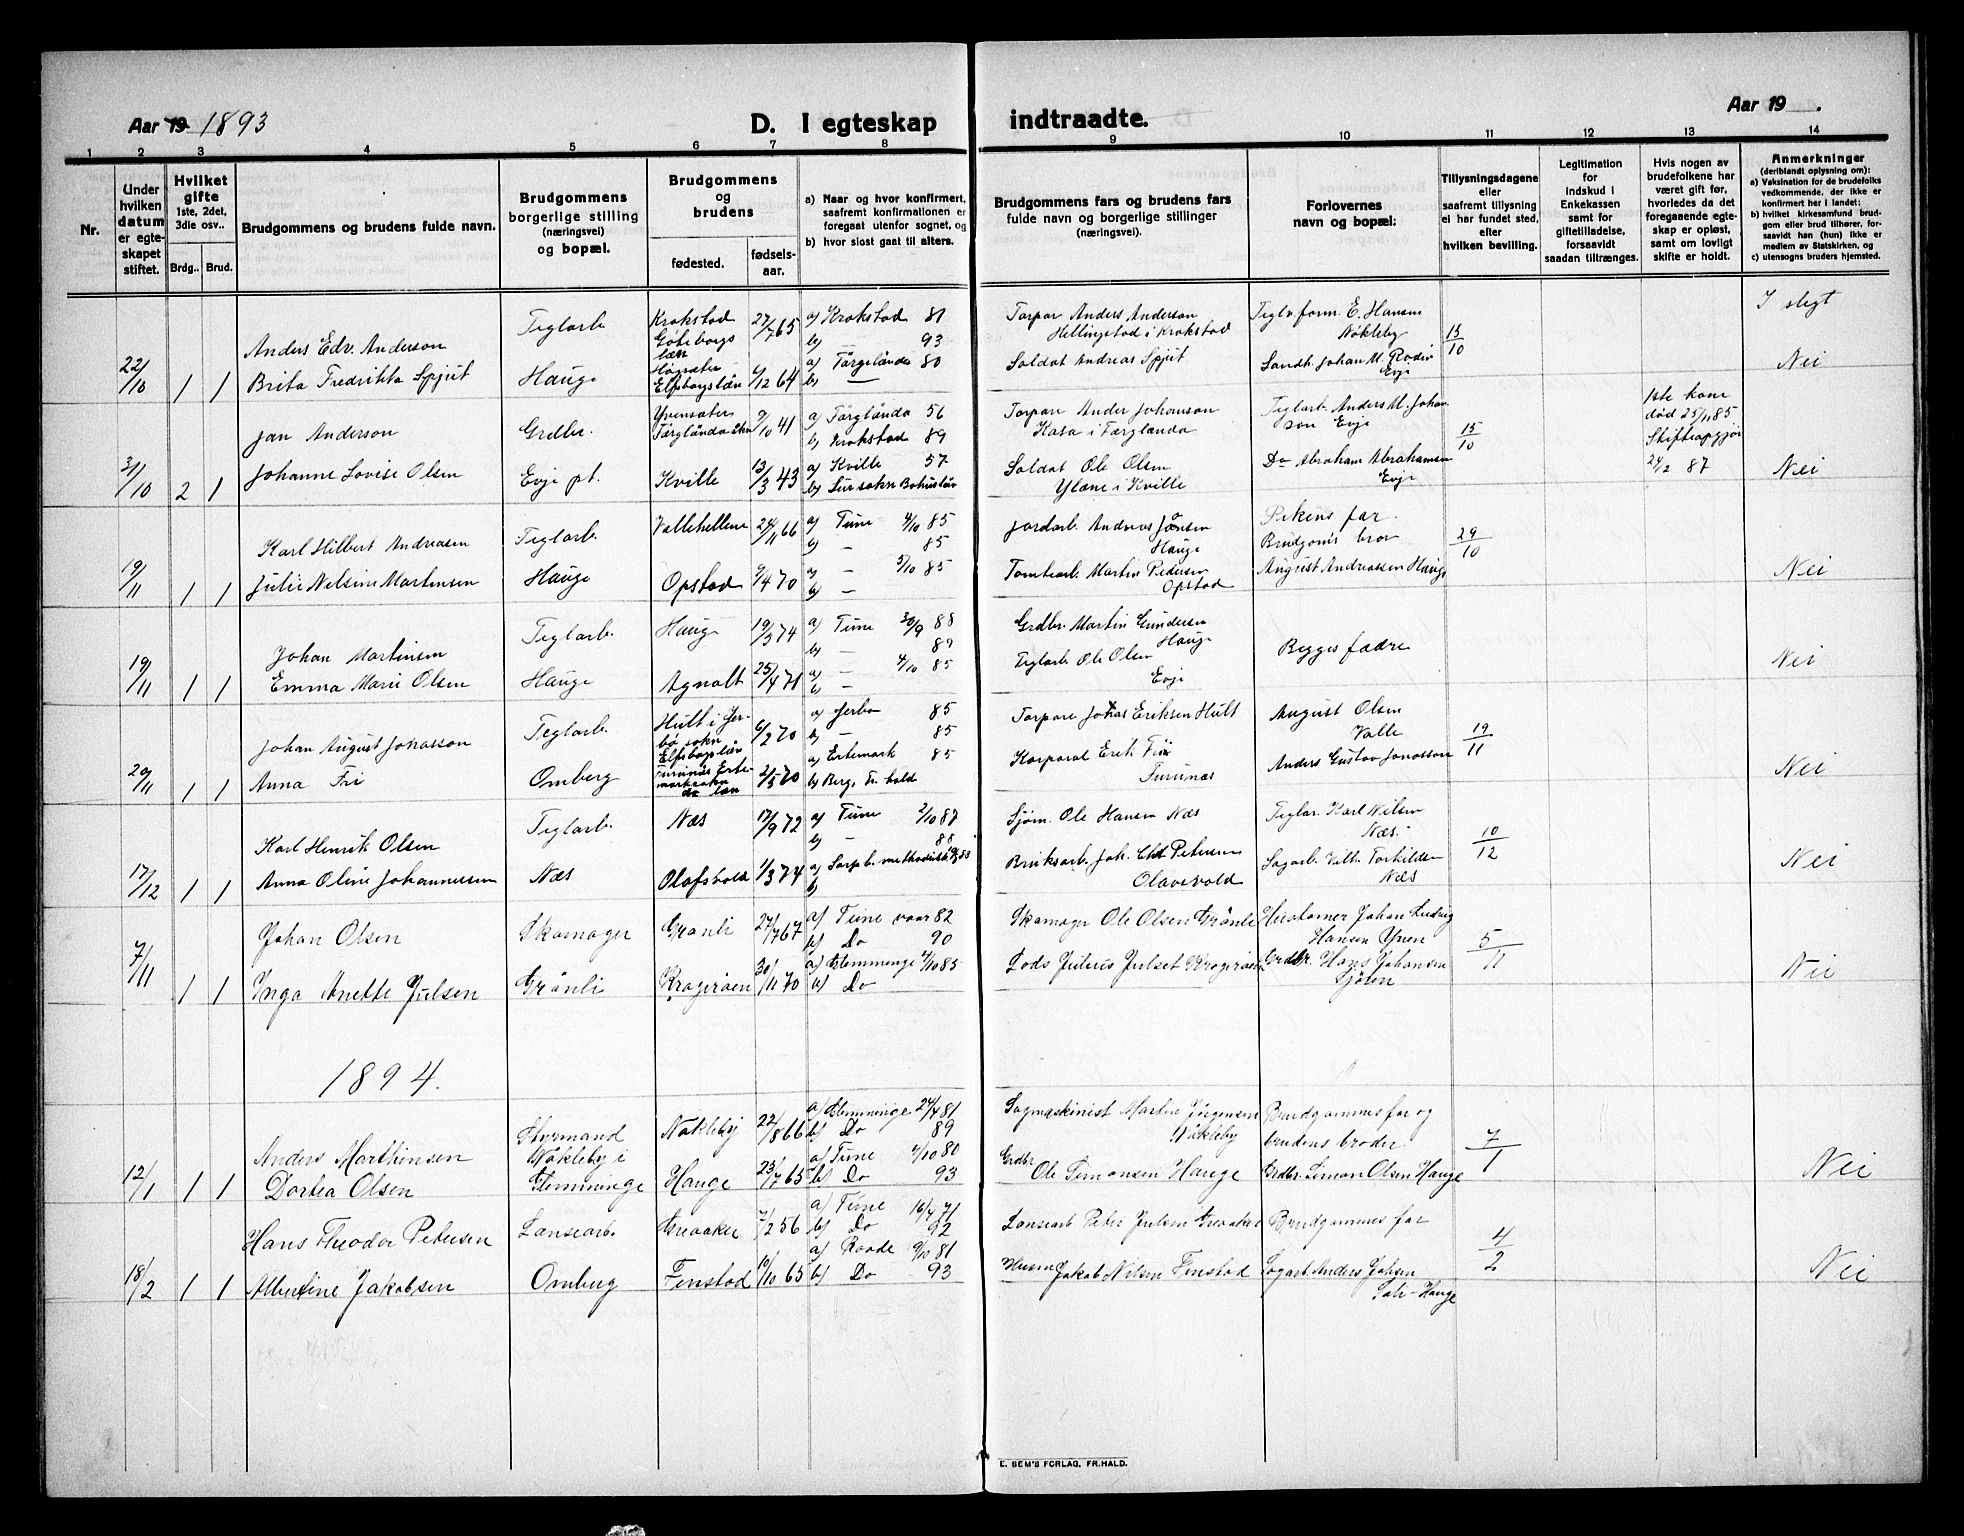 Aar 19 1893
D. I egteskap
indtraadte.
Aar 19 .
1 2 3 4 5 6 7 8 9 10 11 12 13 14
Nr.
Under hvilken datum er egteskapet stiftet.
Hvilket gifte 1ste, 2det, 3die osv..
Brdg.. Brud.
Brudgommens og brudens fulde navn.
Brudgommens borgerlige stilling (næringsvei) og bopæl.
Brudgommens og brudens
fødested. fødsels-aar.
a) Naar og hvor konfirmert, saafremt konfirmationen er foregaat utenfor sognet, og
b) hvor sidst gaat til alters.
Brudgommens fars og brudens fars fulde navn og borgerlige stillinger (næringsvei).
Forlovernes navn og bopæl:
Tillysningsdagene eller saafremt tillysning ei har fundet sted, efter hvilken bevilling.
Legitimation for indskud i Enkekassen samt for giftetilladelse, forsaavidt saadan tiltrænges.
Hvis nogen av brudefolkene har været gift før, hvorledes da det foregaaende egteskap er opløst, samt om lovligt skifte er holdt.
Anmerkninger (deriblandt oplysning om):
a) Vaksination for de brudefolks vedkommende, der ikke er konfirmert her i landet;
b) hvilket kirkesamfund brudgom eller brud tilhører, forsaavidt han (hun) ikke er medlem av Statskirken, og
c) utensogns bruders hjemsted.
22/10 1 1
Anders Edv. Anderson
Brita Fredrikka Spjut
Teglarb
Hauge
Krokstad Göteborgs län 27/7 65
Elfsborgslän 6/12 64
a) Krokstad 81
b) — 93
a) Färgelanda 80
b) —
Torpar Anders Anderson
Hellingstad i Krokstad
Soldat Andreas Spjut
Teglv.form. E. Hansen
Nökleby
Landh. Johan M. Rodin
Evje
15/10
I slegt
Nei
3/10 2 1
Jan Anderson
Johanne Lovise Olsen
Grdbr.
Evje pt.
Färglända skn 9/10 41
Kville 13/3 43
a) Färglända 56
b) Krokstad 89
a) Kville 57
b) Sursokn Bohuslän
Torpare Ander Johanson
Kasa i Færglanda
Soldat Ole Olsen
Ylane i Kville
Teglarb. Anders M. Johanson Evje
Do Abraham Abrahamsen
Evje
15/10
1ste kone
død 25/11 85
Skifteopgjør
24/2 87
Nei
19/11 1 1
Karl Hilbert Andreasen
Julie Nelsine Martensen
Teglarb.
Hauge
Vallehellene 24/11 66
Opstad 9/4 70
a) Tune 4/10 85
b) — 85
a) — 5/10 85
b) —
Jordarb. Andreas Jansen
Hauge
Tomtearb. Martin Pedersen
Opstad
Pikens far
Brudgom's bror
August Andreassen Hauge
29/10
Nei
19/11 1 1
Johan Martinsen
Emma Marie Olsen
Teglarb.
Hauge
Hauge 19/3 74
Agnalt 25/4 71
a) Tune 30/9 88
b) — 89
a) — 4/10 85
b) —
Grdbr. Martin Gundersen
Hauge
Teglarb Ole Olsen
Evje
Begges fædre
Nei
20/11 1 1
Johan August Johasson
Anna Fri
Teglarb.
Omberg
Hult i Jerbo sokn Elfsborgslän 6/2 70
Furunäs Ertemarksokn do län 2/5 70
a) Jerbo 85
b) — 85
a) Ertemark 85
b) Berg, Fr.hald
Torpare Johas Eriksen Hult
Korporal Erik Fri
Furunæs
August Olsen
Valle
Anders Gustav Jonasson
19/11
Nei
17/12 1 1
Karl Henrik Olsen
Anna Oline Johannessen
Teglarb.
Næs
Næs 17/9 72
Olafsvold 1/3 74
a) Tune 2/10 87
b) — 88
a) Sarpb. methodistk.
b)
Sjöm. Ole Hansen Næs
Bruksarb. Joh. Chr Petersen
Olavsvold
Teglar. Karl Nilsen
Næs.
Sagarb. Vilh. Torkildsen
Næs
10/12
Nei
7/11 1 1
Johan Olsen
Inga Anette Julsen
Skomager
Grånli
Grånli 27/7 67
Krageröen 30/11 70
a) Tune vaar 82
b) Do 90
a) Glemminge 4/10 85
b) Do
Skomager Ole Olsen Grånli
Lods Julius Julsen Krageröen
Hustomer Johan Ludvig
Hansen Yven
Grdbr. Hans Johansen
Sjöen
5/11
Nei
1894.
12/1 1 1
Anders Marthinsen
Dortea Olsen
Styrmand
Nökleby i
Glemminge
Nökleby 22/8 66
Hauge 23/7 65
a) Glemminge 24/4 81
b) Do 89
a) Tune 4/10 80
b) Do 93
Sagmaskinist Martin Jörgensen
Nökleby
Grdbr
Ole Simonsen Hauge
Brudgommes far og
brudens broder
Grdbr. Simon Olsen Hauge
7/1
Nei
18/2 1 1
Hans Theodor Petersen
Albertine Jakobsen
Lansearb.
Omberg
Greaaker 7/2 56
Finstad 10/10 65
a) Tune 16/4 71
b) Do 92
a) Raade 9/10 81
b) Do 93
Lansearb Peter Julsen Greaaker
Husm Jakob Nilsen Finstad
Brudgommes far
Sogarb. Anders Johsen
Sole-Hauge
4/2
Nei
E. SEM'S FORLAG, FR.HALD.